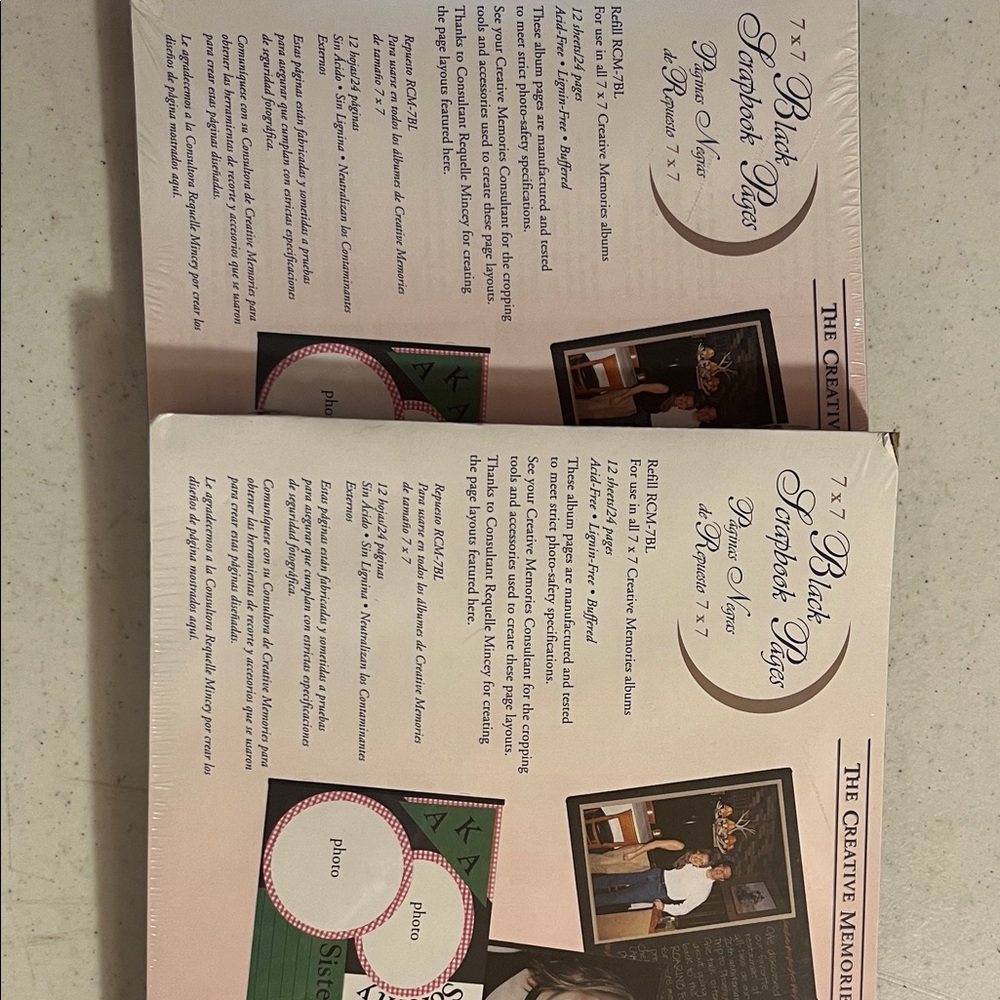 7 x 7 Black
Scrapbook Pages
Páginas Negras
de Repuesto 7 x 7
Refill RCM-7BL
For use in all 7 x 7 Creative Memories albums
12 sheets/24 pages
Acid-Free • Lignin-Free • Buffered
These album pages are manufactured and tested
to meet strict photo-safety specifications.
See your Creative Memories Consultant for the cropping
tools and accessories used to create these page layouts.
Thanks to Consultant Requelle Mincey for creating
the page layouts featured here.
Repuesto RCM-7BL
Para usarse en todos los álbumes de Creative Memories
de tamaño 7 x 7
12 hojas/24 páginas
Sin Ácido • Sin Lignina • Neutralizan los Contaminantes
Externos
Estas páginas están fabricadas y sometidas a pruebas
para asegurar que cumplan con estrictas especificaciones
de seguridad fotográfica.
Comuníquese con su Consultora de Creative Memories para
obtener las herramientas de recorte y accesorios que se usaron
para crear estas páginas diseñadas.
Le agradecemos a la Consultora Requelle Mincey por crear los
diseños de página mostrados aquí.
THE CREATIV
AKA
pho
7 x 7 Black
Scrapbook Pages
Páginas Negras
de Repuesto 7 x 7
Refill RCM-7BL
For use in all 7 x 7 Creative Memories albums
12 sheets/24 pages
Acid-Free • Lignin-Free • Buffered
These album pages are manufactured and tested
to meet strict photo-safety specifications.
See your Creative Memories Consultant for the cropping
tools and accessories used to create these page layouts.
Thanks to Consultant Requelle Mincey for creating
the page layouts featured here.
Repuesto RCM-7BL
Para usarse en todos los álbumes de Creative Memories
de tamaño 7 x 7
12 hojas/24 páginas
Sin Ácido • Sin Lignina • Neutralizan los Contaminantes
Externos
Estas páginas están fabricadas y sometidas a pruebas
para asegurar que cumplan con estrictas especificaciones
de seguridad fotográfica.
Comuníquese con su Consultora de Creative Memories para
obtener las herramientas de recorte y accesorios que se usaron
para crear estas páginas diseñadas.
Le agradecemos a la Consultora Requelle Mincey por crear los
diseños de página mostrados aquí.
THE CREATIVE MEMORIE
AKA
photo
photo
Siste